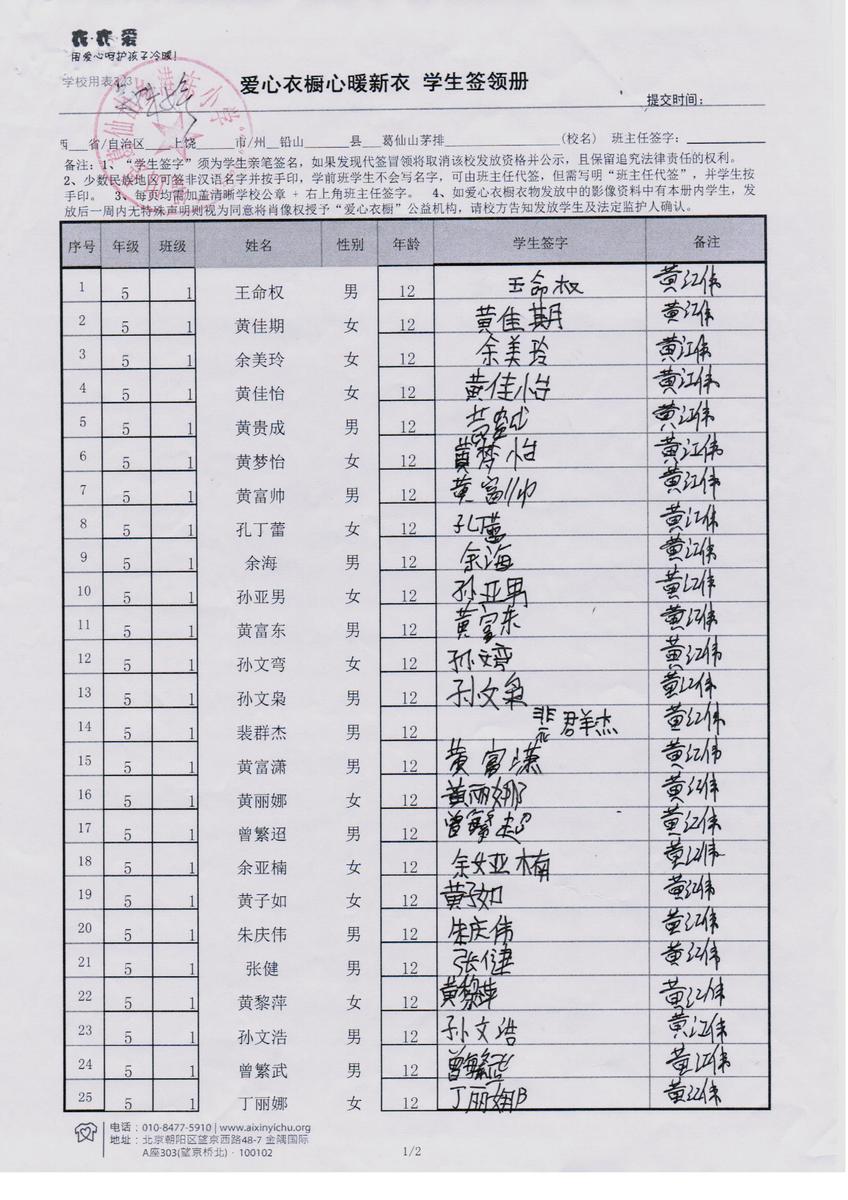 衣·衣·爱
用爱心呵护孩子冷暖!
学校用表323
爱心衣橱心暖新衣 学生签领册
提交时间:
西___省/自治区____上饶_____市/州__铅山______县___葛仙山茅排________________(校名) 班主任签字:
备注:1、“学生签字”须为学生亲笔签名,如果发现代签冒领将取消该校发放资格并公示,且保留追究法律责任的权利。
2、少数民族地区可签非汉语名字并按手印,学前班学生不会写名字,可由班主任代签,但需写明“班主任代签”,并学生按
手印。 3、每页均需加盖清晰学校公章 + 右上角班主任签字。 4、如爱心衣橱衣物发放中的影像资料中有本册内学生,发
放后一周内无特殊声明则视为同意将肖像权授予“爱心衣橱”公益机构,请校方告知发放学生及法定监护人确认。
序号 年级 班级 姓名 性别 年龄 学生签字 备注
1 5 1 王命权 男 12 王命权 黄江伟
2 5 1 黄佳期 女 12 黄佳期 黄江伟
3 5 1 余美玲 女 12 余美玲 黄江伟
4 5 1 黄佳怡 女 12 黄佳怡 黄江伟
5 5 1 黄贵成 男 12 黄贵成 黄江伟
6 5 1 黄梦怡 女 12 黄梦怡 黄江伟
7 5 1 黄富帅 男 12 黄富帅 黄江伟
8 5 1 孔丁蕾 女 12 孔丁蕾 黄江伟
9 5 1 余海 男 12 余海 黄江伟
10 5 1 孙亚男 女 12 孙亚男 黄江伟
11 5 1 黄富东 男 12 黄富东 黄江伟
12 5 1 孙文弯 女 12 孙文弯 黄江伟
13 5 1 孙文枭 男 12 孙文枭 黄江伟
14 5 1 裴群杰 男 12 裴群杰 黄江伟
15 5 1 黄富潇 男 12 黄富潇 黄江伟
16 5 1 黄丽娜 女 12 黄丽娜 黄江伟
17 5 1 曾繁迢 男 12 曾繁超 黄江伟
18 5 1 余亚楠 女 12 余亚楠 黄江伟
19 5 1 黄子如 女 12 黄子如 黄江伟
20 5 1 朱庆伟 男 12 朱庆伟 黄江伟
21 5 1 张健 男 12 张健 黄江伟
22 5 1 黄黎萍 女 12 黄黎萍 黄江伟
23 5 1 孙文浩 男 12 孙文浩 黄江伟
24 5 1 曾繁武 男 12 曾繁武 黄江伟
25 5 1 丁丽娜 女 12 丁丽娜 黄江伟
电话:010-8477-5910 | www.aixinyichu.org
地址:北京朝阳区望京西路48-7 金隅国际
A座303(望京桥北)·100102
1/2